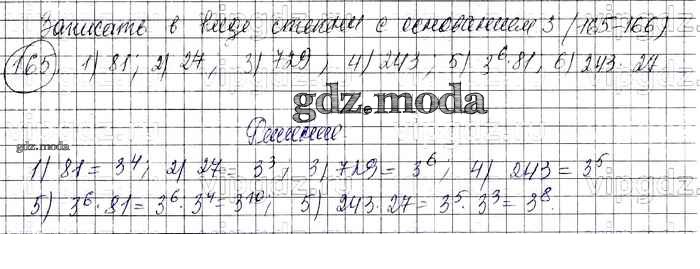 Записать в виде степени с основанием 3 (165-166)
165. 1) 81; 2) 27, 3) 729, 4) 243; 5) 3⁶·81, 6) 243·27
gdz.moda
Решение
gdz.moda
1) 81 = 3⁴; 2) 27 = 3³; 3) 729 = 3⁶; 4) 243 = 3⁵
5) 3⁶·81 = 3⁶·3⁴ = 3¹⁰; 5) 243·27 = 3⁵·3³ = 3⁸.